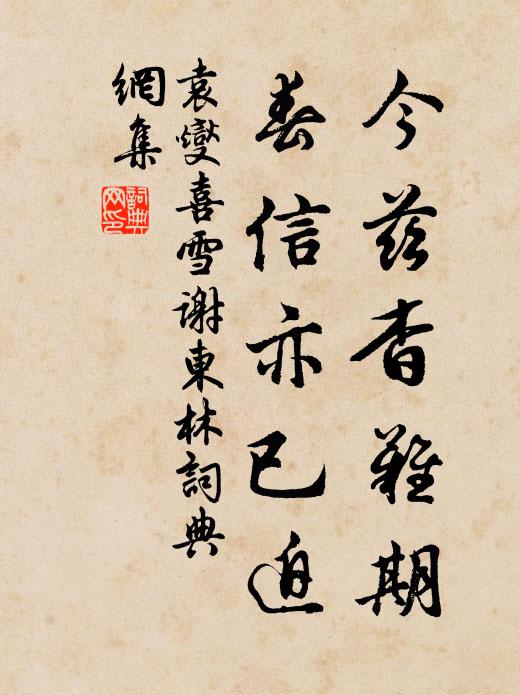 今兹杳难期
春信亦已迫
袁燮喜雪谢東林詞典
網集
詞典網印